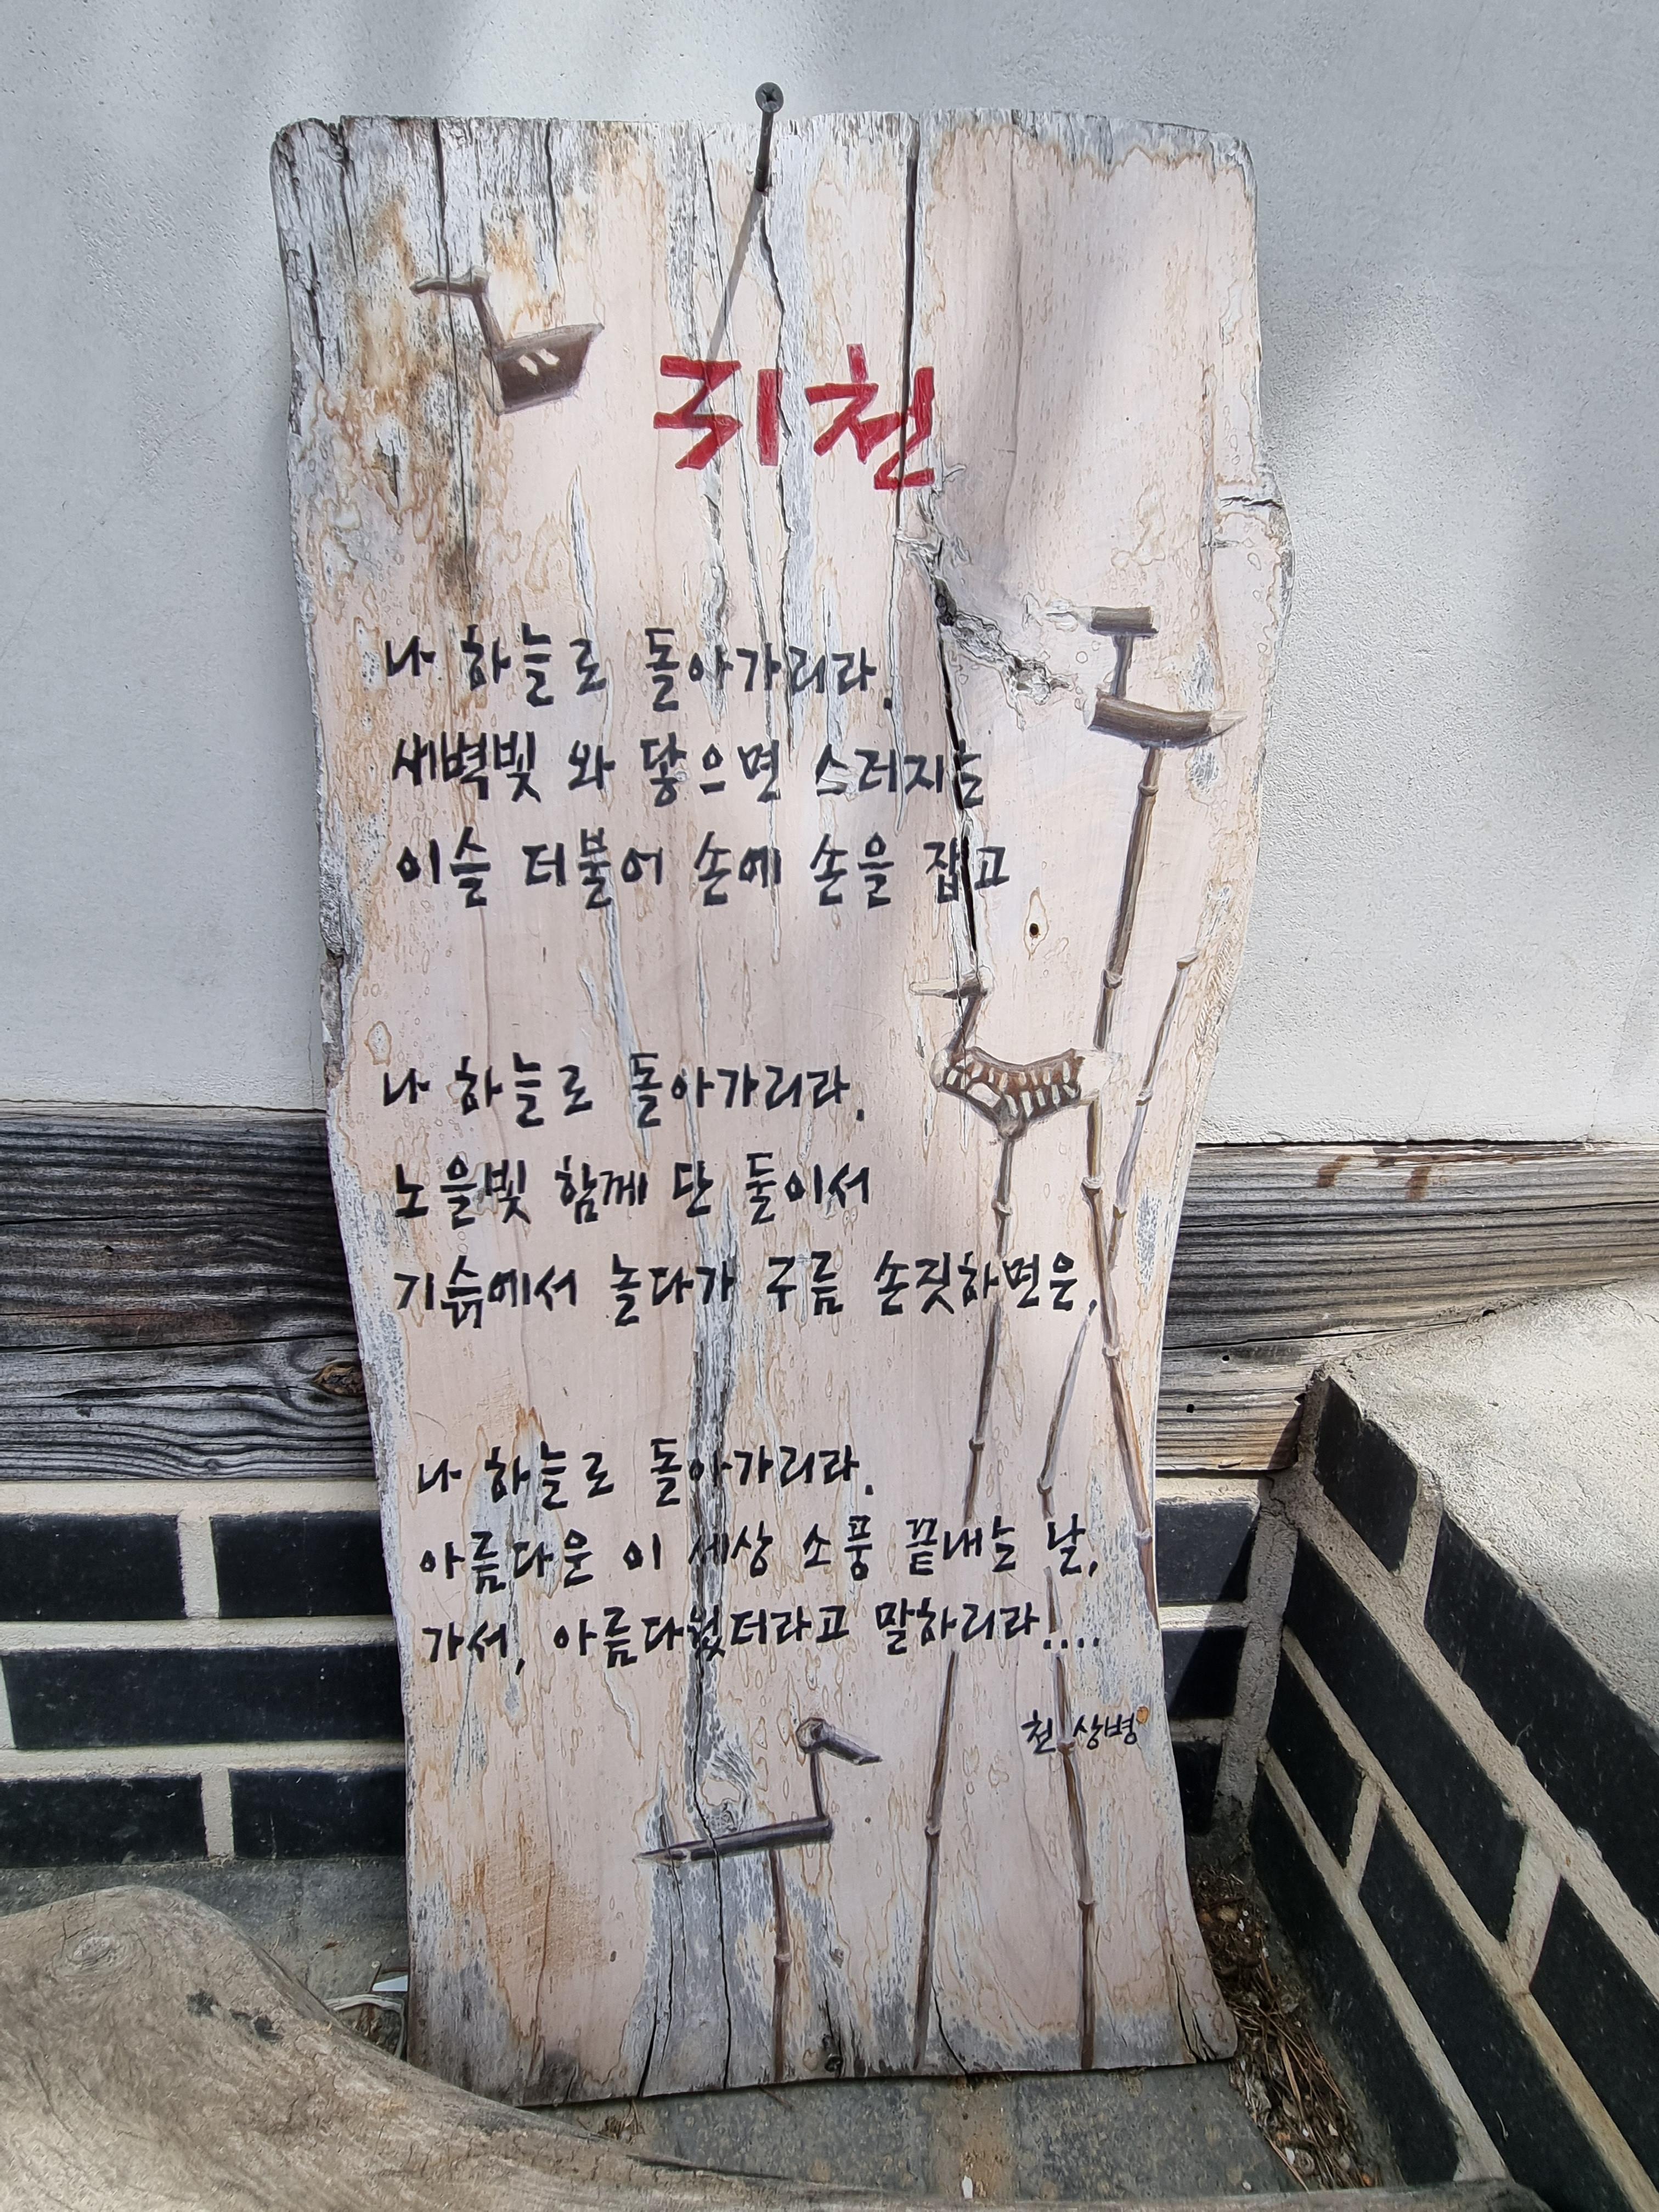 귀천
나 하늘로 돌아가리라.
새벽빛 와 닿으면 스러지는
이슬 더불어 손에 손을 잡고
나 하늘로 돌아가리라.
노을빛 함께 단 둘이서
기슭에서 놀다가 구름 손짓하면은,
나 하늘로 돌아가리라.
아름다운 이 세상 소풍 끝내는 날,
가서, 아름다웠더라고 말하리라....
천상병